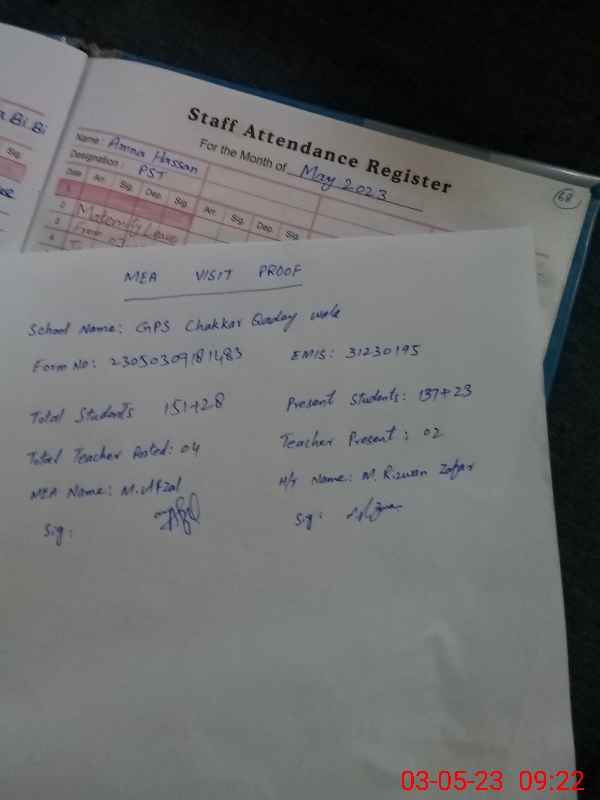 a Bi Bi
Sig.
Staff Attendance Register
For the Month of May 2023
68
Name: Amna Hassan
Designation: PST
Date Arr. Sig. Dep. Sig. Arr. Sig. Dep. Sig.
1
2 Maternity Leave
3 From
4
MEA VISIT PROOF
School Name: GPS Chakkar Qaday wala
Form No: 23050309181483 EMIS: 31230195
Total Students 151+28 Present Students: 137+23
Total Teacher Posted: 04 Teacher Present: 02
MEA Name: M. Afzal H/t Name: M. Rizwan Zafar
Sig: Sig:
03-05-23 09:22